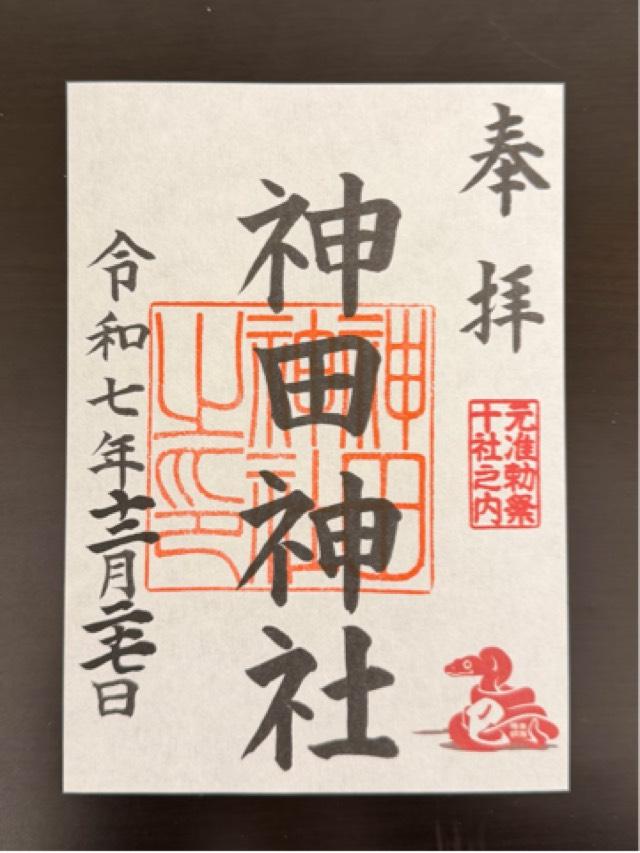 奉拝
元准勅祭
十社之内
神田神社
神田
神社
之印
令和七年十二月二十七日